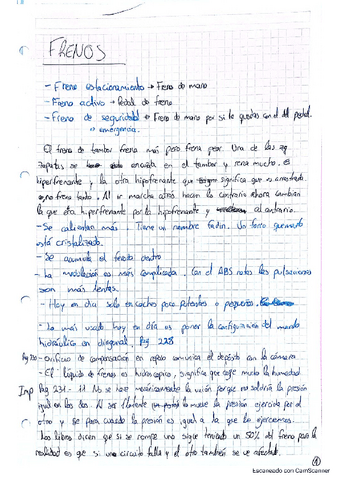 FRENOS
- Freno estacionamiento → Freno de mano
- Freno activo → Pedal de freno
- Freno de seguridad → Freno de mano por si te quedas con el del pedal.
o emergencia.
El freno de tambor frena más pero frena peor. Una de las
zapatas se encuña en el tambor y frena mucho. es
hiperfrenante y la otra hipofrenante que significa que es arrastrada
y no frena tanto. Al ir marcha atrás hacen lo contrario ahora cambian
la que era hiperfrenante por la hipofrenante y al contrario.
- Se calientan más. Tiene un nombre fading. Un forro quemado
está cristalizado.
- Se acumula el ferodo dentro
- La modulación es más complicada. Con el ABS notas las pulsaciones
son más lentas.
- Hoy en día solo en coches poco potentes o pequeños.
- Lo más usado hoy en día es poner la configuración del mando
hidráulico en diagonal. Pag 228
Pg 230 - Orificio de compensación en reposo comunica el depósito con la cámara
- El líquido de frenos es hidroscopico, significa que coge mucho la humedad
Imp Pag 231 - 11 No se hace mecánicamente la unión porque no saldría la presión
igual en los dos. Al ser flotante lo mueve la presión ejercida por el
otro y se para cuando la presión es igual a la que le ejercemos.
Los libros dicen que si se rompe uno sigue teniendo un 50% del freno pero la
realidad es que si un circuito falla y el otro también se ve afectado.
1
Escaneado con CamScanner